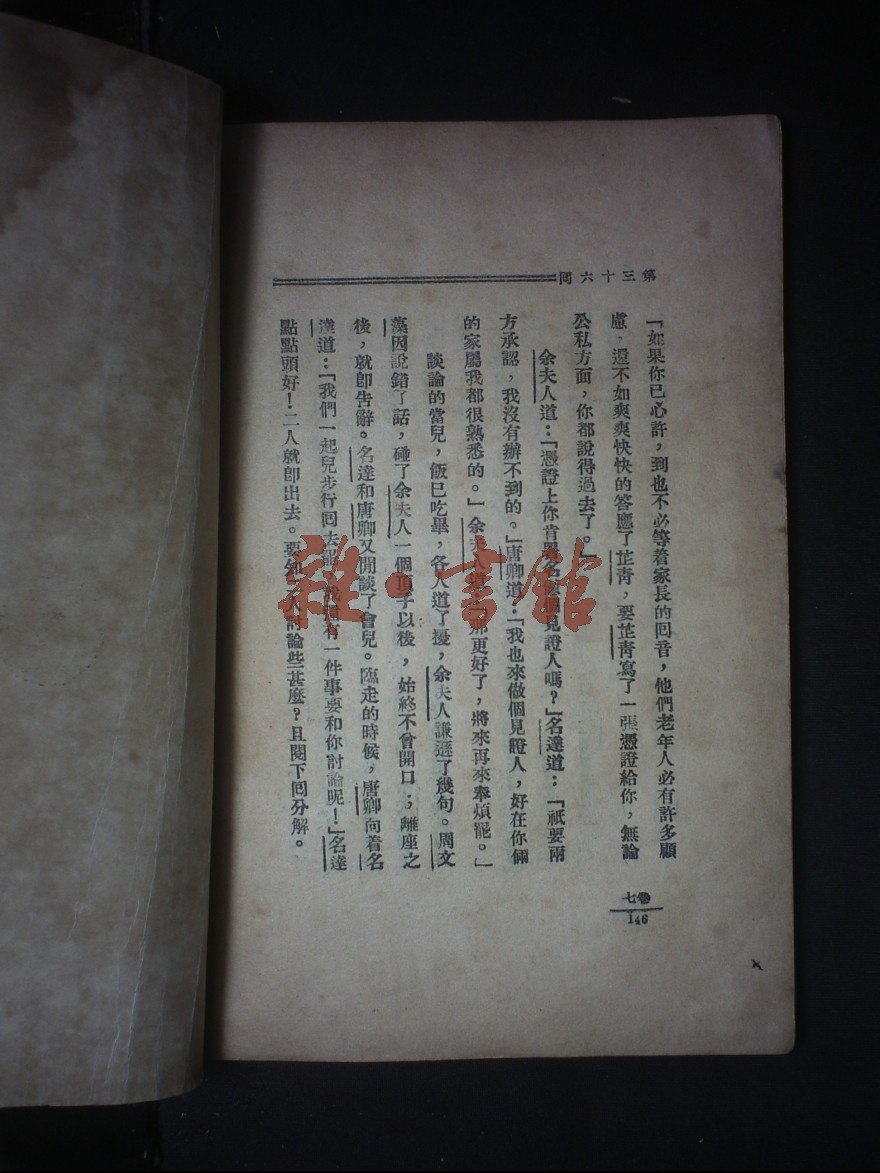 第三十六回
「如果你已必許，到也不必等着家長的回音，他們老年人必有許多顧
慮，還不如爽爽快快的答應了芷青，要芷青寫了一張憑證給你，無論
公私方面，你都說得過去了。」
余夫人道：「憑證上你肯署名做個見證人嗎？」名達道：「祇要兩
方承認，我沒有辦不到的。」唐卿道：「我也來做個見證人，好在你倆
的家屬我都很熟悉的。」余夫人道：「那更好了，將來再來牽煩罷。」
談論的當兒，飯已吃畢，各人道了擾，余夫人謙遜了幾句。周文
藻因說錯了話，碰了余夫人一個頂子以後，始終不曾開口；離座之
後，就卽告辭。名達和唐卿又閒談了會兒。臨走的時候，唐卿向着名
達道：「我們一起兒步行回去罷，我還有一件事要和你討論呢！」名達
點點頭好！二人就卽出去。要知二人討論些甚麼？且閱下回分解。
卷七
146
雜·書館